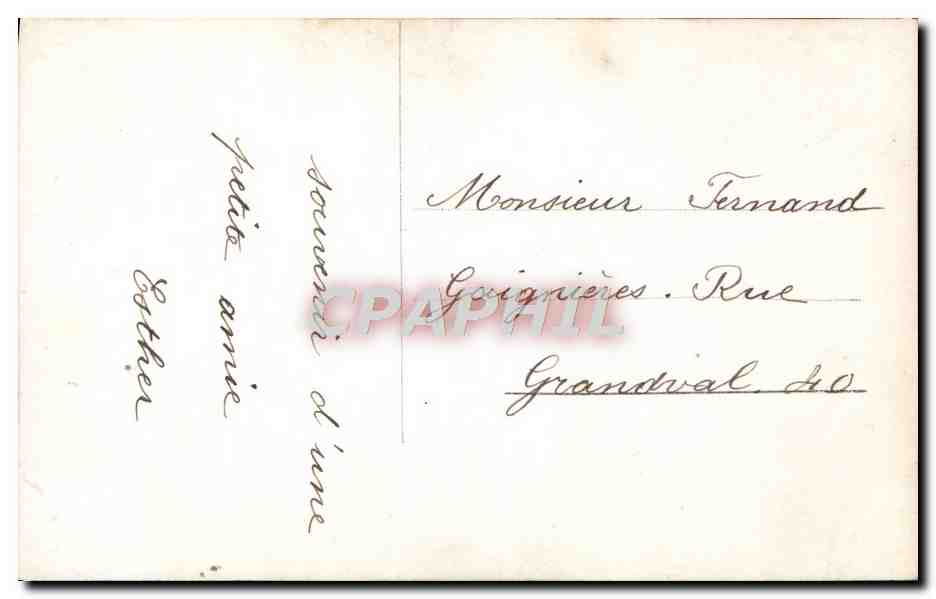 souvenir d'une
petite amie
Esther
Monsieur Fernand
Goignières. Rue
Grandval. 40
CPAPHIL